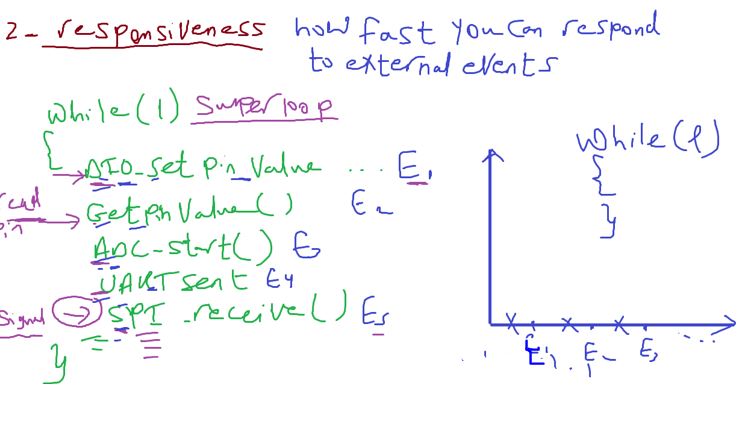 2- responsiveness how fast you can respond
to external events
while(1) superloop
{
DIO_set pin Value ... E1
read pin
Getpin Value() E2
ADC-start() E
UART sent E4
signal → SPI_receive() E5
}
while(1)
{
}
E1 E2 E3 ...